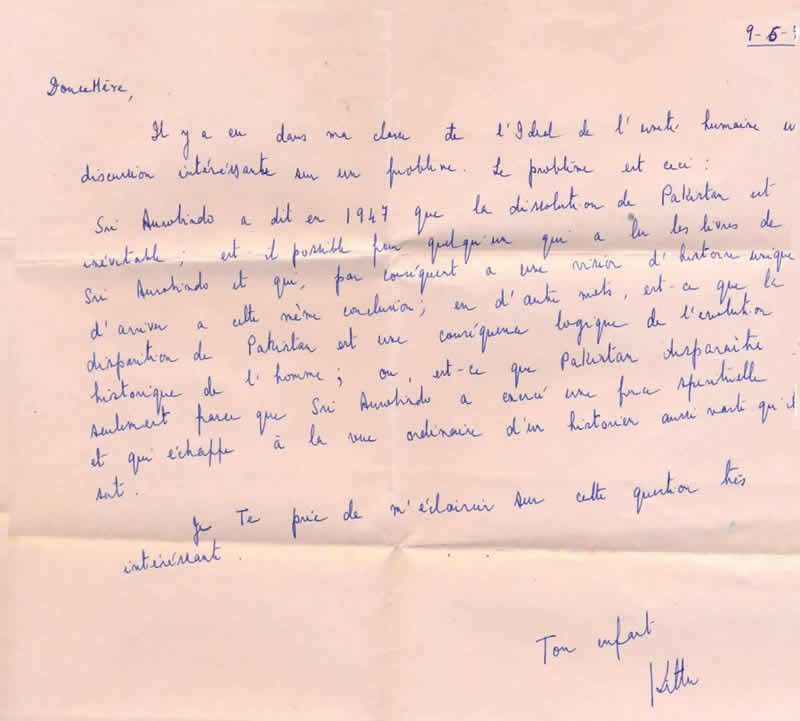 9-5-
Douce Mère,
Il y a eu dans ma classe de l'Idéal de l'unité humaine
discussion intéréssante sur un problème. Le problème est ceci :
Sri Aurobindo a dit en 1947 que la dissolution de Pakistan est
inévitable ; est-il possible pour quelqu'un qui a lu les livres de
Sri Aurobindo et qui, par conséquent a une vision d'histoire unique
d'arriver a cette même conclusion ; en d'autre mots, est-ce que la
disparition de Pakistan est une conséquence logique de l'evolution
historique de l'homme ; ou, est-ce que Pakistan disparaitre
seulement parce que Sri Aurobindo a exercé une force spirituelle
et qui échappe à la vue ordinaire d'un historien aussi vaste qu'il
soit.
Je Te prie de m'éclaircir sur cette question très
intéréssant.
Ton enfant
Kittu